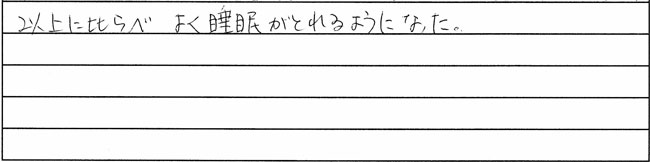 以上に比らべ よく睡眠がとれるようになった。